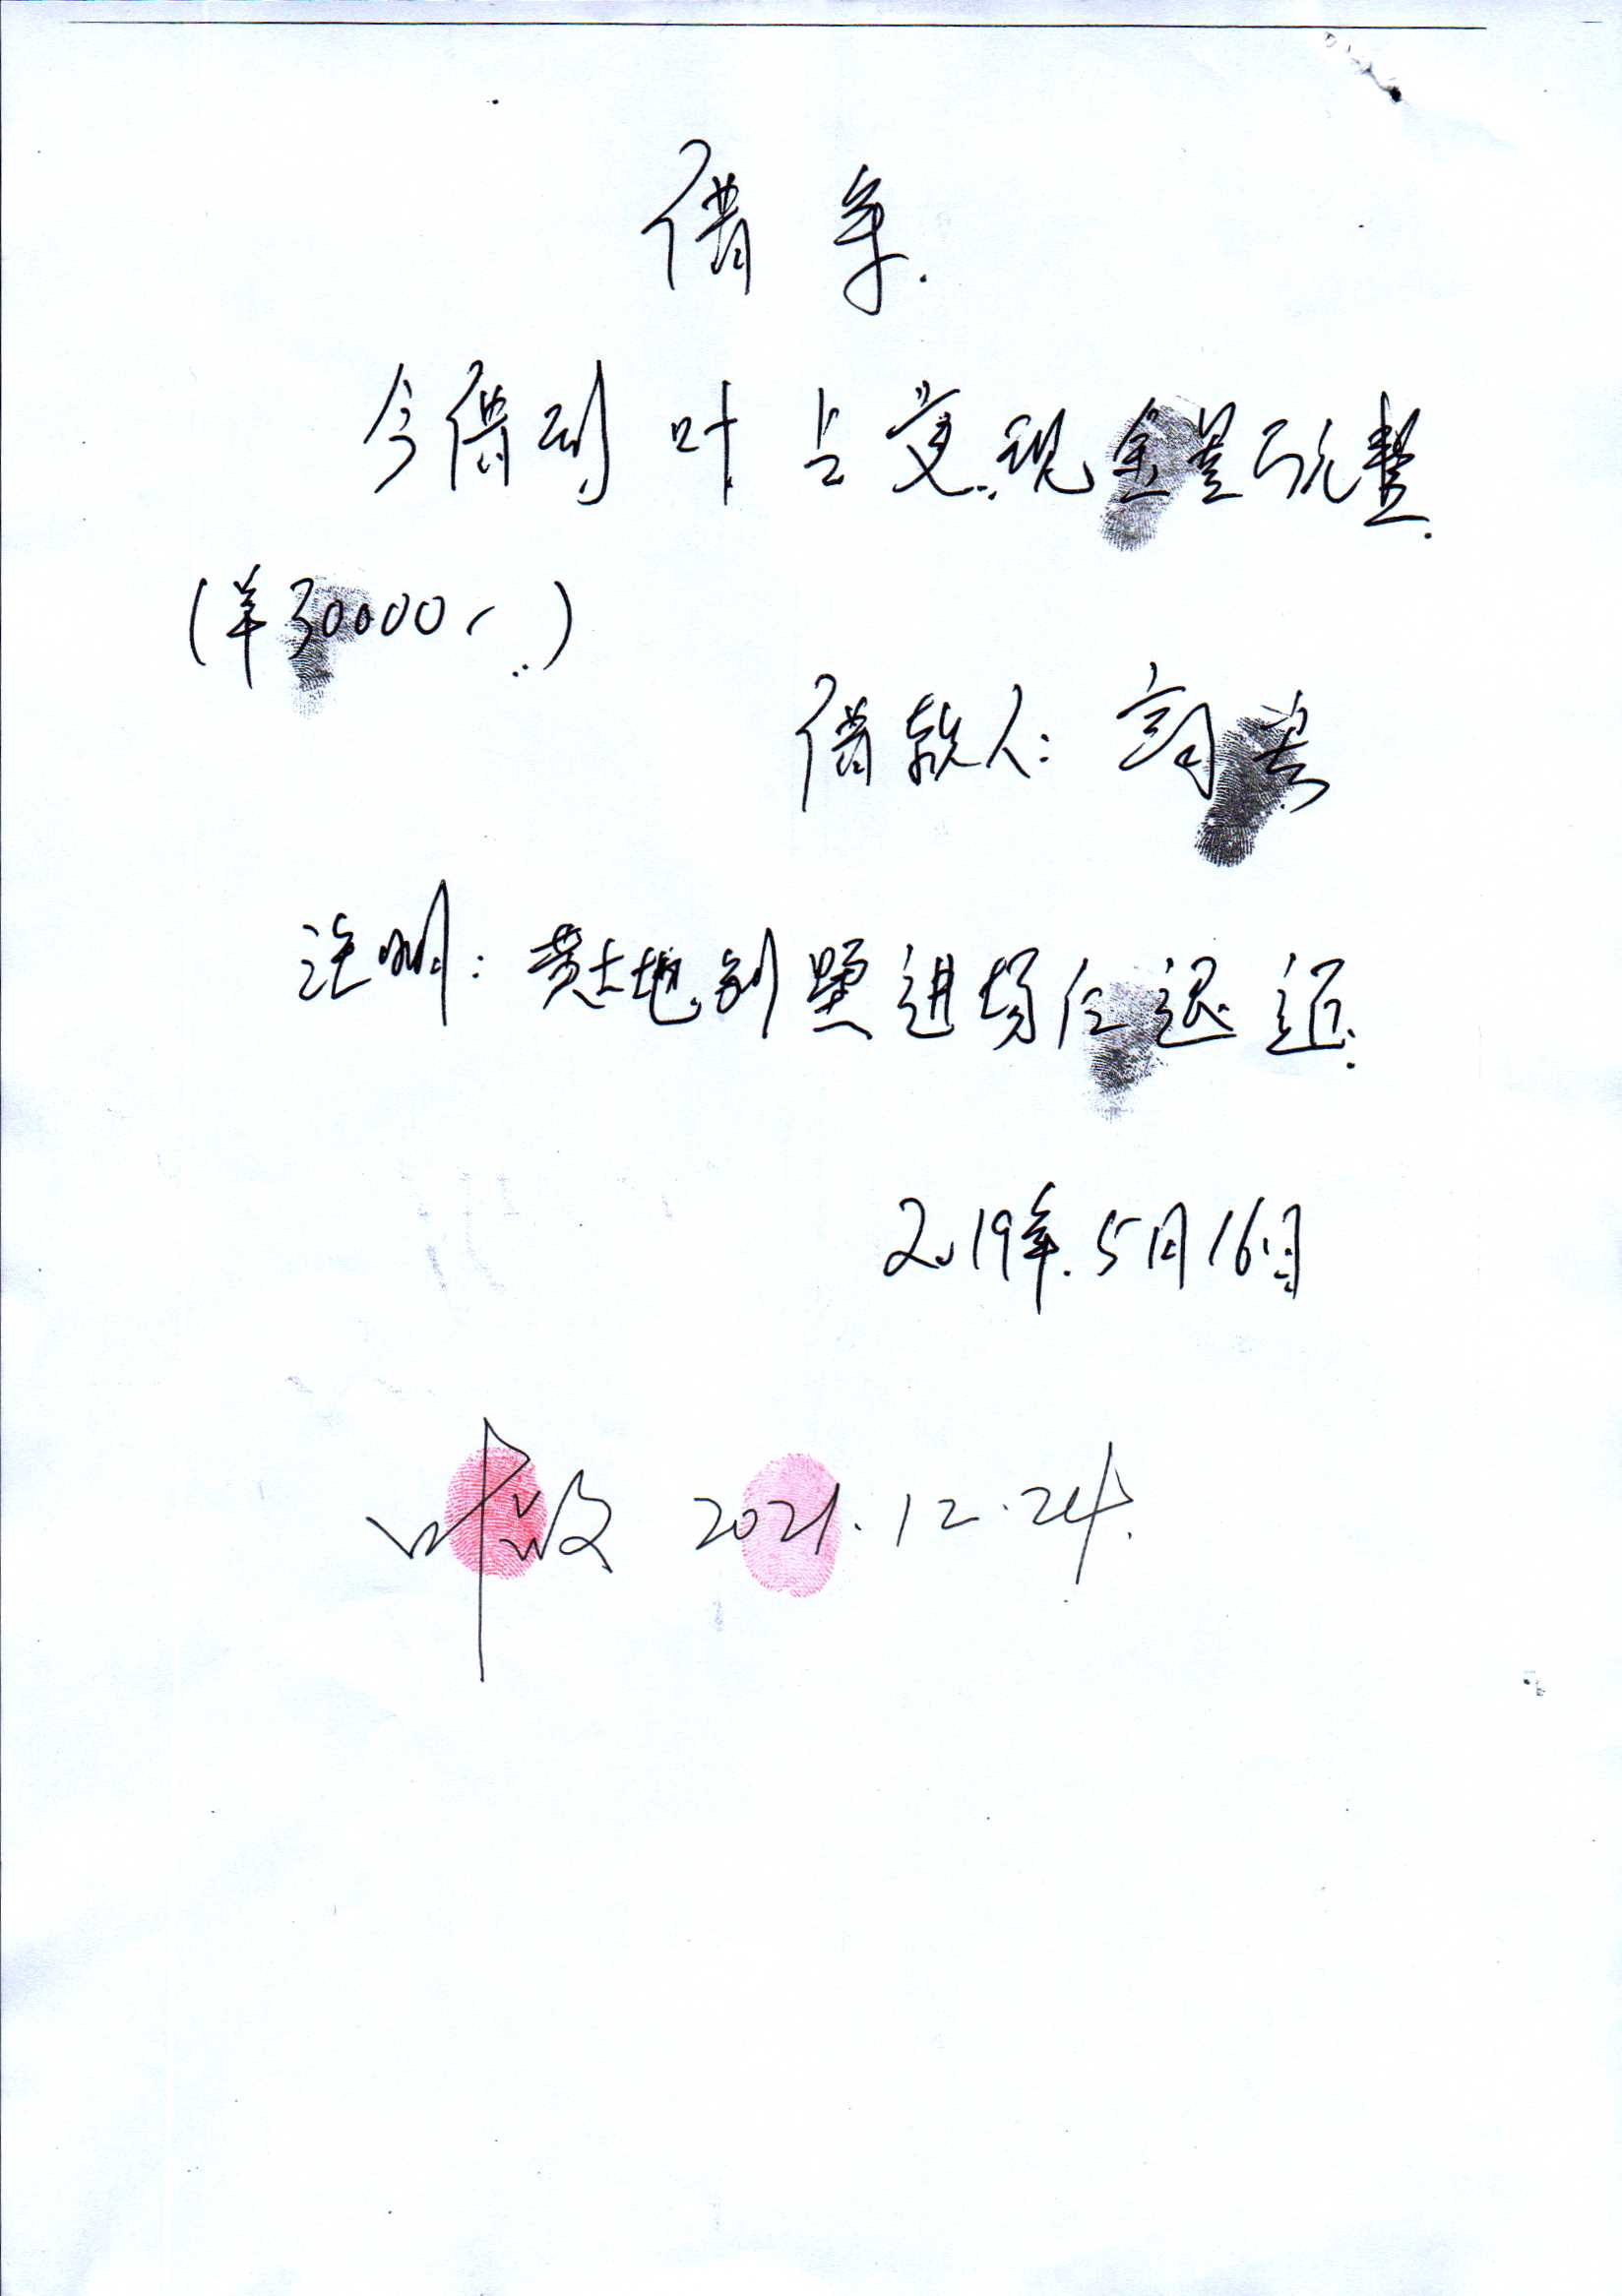 借条.
今借到叶占 现金叁万元整.
(羊30000、)
借款人:
注明: 黄土地别墅进场后退还.
2019年.5月16日
叶 2021.12.24.